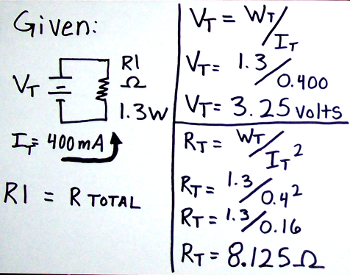 Given:
R1
VT
Ω
1.3W
IT = 400mA
R1 = R TOTAL
VT = WT/IT
VT = 1.3/0.400
VT = 3.25 volts
RT = WT/IT²
RT = 1.3/0.4²
RT = 1.3/0.16
RT = 8.125Ω